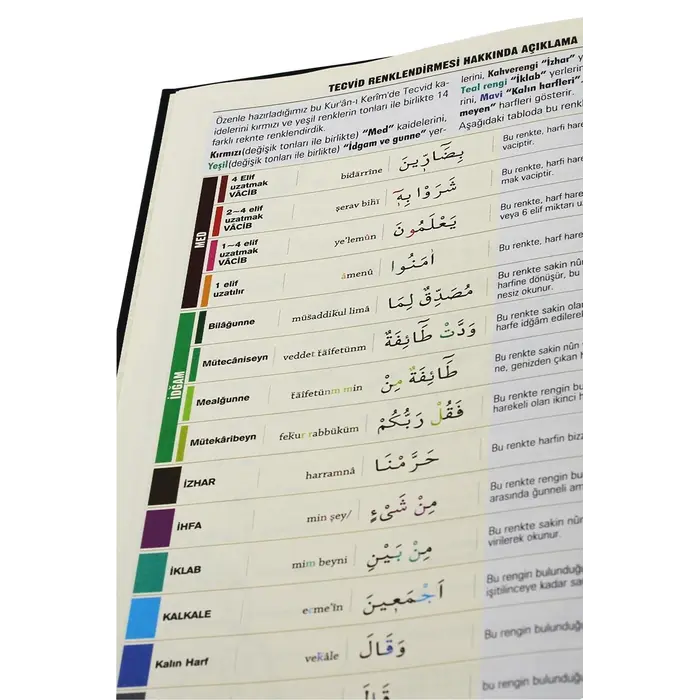 TECVİD RENKLENDİRMESİ HAKKINDA AÇIKLAMA
Özenle hazırladığımız bu Kur'ân-ı Kerîm'de Tecvid ka-
idelerini kırmızı ve yeşil renklerin tonları ile birlikte 14
farklı reknte renklendirdik.
Kırmızı(değişik tonları ile birlikte) "Med" kaidelerini,
Yeşil(değişik tonları ile birlikte) "İdgam ve gunne" yer-
lerini, Kahverengi "İzhar" y
Teal rengi "İklab" yerlerin
rini, Mavi "Kalın harfleri",
meyen" harfleri gösterir.
Aşağıdaki tabloda bu renkl
MED
4 Elif
uzatmak
VÂCİB
bidârrîne
بِضَٓارّ۪ينَ
Bu renkte, harfi hare
vaciptir.
2~4 elif
uzatmak
VÂCİB
şerav bihî
شَرَوْا بِه۪ٓ
Bu renkte, harfi hare
mak vaciptir.
1~4 elif
uzatmak
VÂCİB
ye'lemûn
يَعْلَمُونَ
Bu renkte, harf hare
veya 6 elif miktarı uz
1 elif
uzatılır
âmenû
اٰمَنُوا
Bu renkte, harfi hare
İDĞAM
Bilâğunne
müsaddikul limâ
مُصَدِّقٌ لِمَا
Bu renkte sakin nûn
harfine dönüşür, bu
nesiz okunur.
Mütecâniseyn
veddet tâifetünm
وَدَّتْ طَٓائِفَةٌ
Bu renkte sakin olan
harfe idğâm edilerek
Mealğunne
tâifetünm min
طَٓائِفَةٌ مِنْ
Bu renkte sakin nûn
ne, genizden çıkan
Mütekâribeyn
fekur rabbüküm
فَقُلْ رَبُّكُمْ
Bu renkte rengin bu
harekeli olan ikinci h
İZHAR
harramnâ
حَرَّمْنَا
Bu renkte harfin bizz
İHFA
min şey/
مِنْ شَيْءٍ
Bu renkte rengin bu
arasında ğunneli am
İKLAB
mim beyni
مِنْ بَيْنِ
Bu renkte sakin nûn
virilerek okunur.
KALKALE
ecme'în
اَجْمَع۪ينَ
Bu rengin bulunduğu
işitilinceye kadar sa
Kalın Harf
vekâle
وَقَالَ
Bu rengin bulunduğu
قَالَ
bu rengin bulunduğu